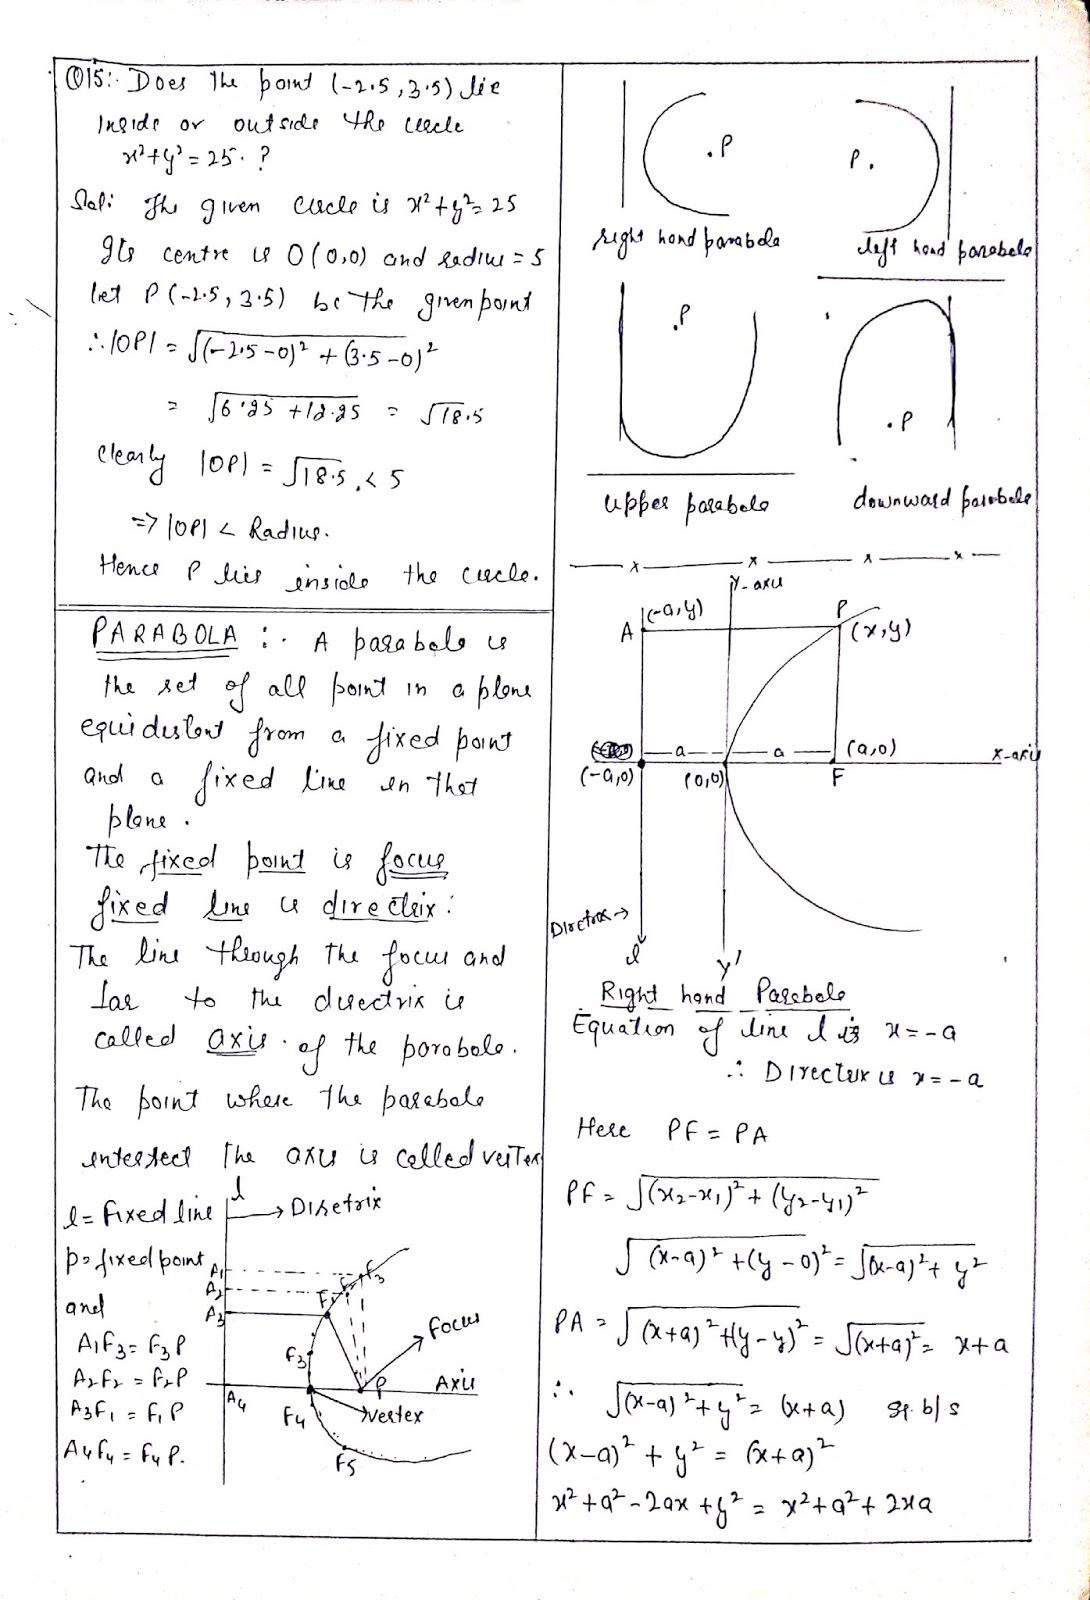 Q15:- Does the point (-2.5, 3.5) lie
Inside or outside the circle
x²+y²=25. ?
Sol: The given circle is x²+y²=25
Its centre is O(0,0) and radius = 5
let P(-2.5, 3.5) be the given point
∴ |OP| = √(-2.5-0)² + (3.5-0)²
= √6.25 + 12.25 = √18.5
Clearly |OP| = √18.5 < 5
=> |OP| < Radius.
Hence P lies inside the circle.
PARABOLA :- A parabola is
the set of all point in a plane
equidistant from a fixed point
and a fixed line in that
plane.
The fixed point is focus
fixed line is directrix:
The line through the focus and
⊥ar to the directrix is
called axis of the parabola.
The point where the parabola
intersect the axis is called vertex
l = fixed line
l
→ Diretrix
p = fixed point
and
A₁F₃ = F₃P
A₂F₂ = F₂P
A₃F₁ = F₁P
A₄F₄ = F₄P.
A₁
A₂
A₃
A₄
F₃
F₁
F₃
F₄
F₅
P
focus
Axis
vertex
.P
P.
right hand parabola
left hand parabola
.P
.P
upper parabola
downward parabola
x x x x
Y-axis
A
(-a,y)
P
(x,y)
a
a
(a,0)
X-axis
(-a,0)
(0,0)
F
Dirctrix →
l
y'
Right hand Parabola
Equation of line l is x=-a
∴ Directrix is x=-a
Here PF = PA
PF = √(x₂-x₁)² + (y₂-y₁)²
√(x-a)² + (y-0)² = √(x-a)² + y²
PA = √(x+a)² + (y-y)² = √(x+a)² = x+a
∴ √(x-a)² + y² = (x+a) sq. b/s
(x-a)² + y² = (x+a)²
x²+a²-2ax+y² = x²+a²+2xa